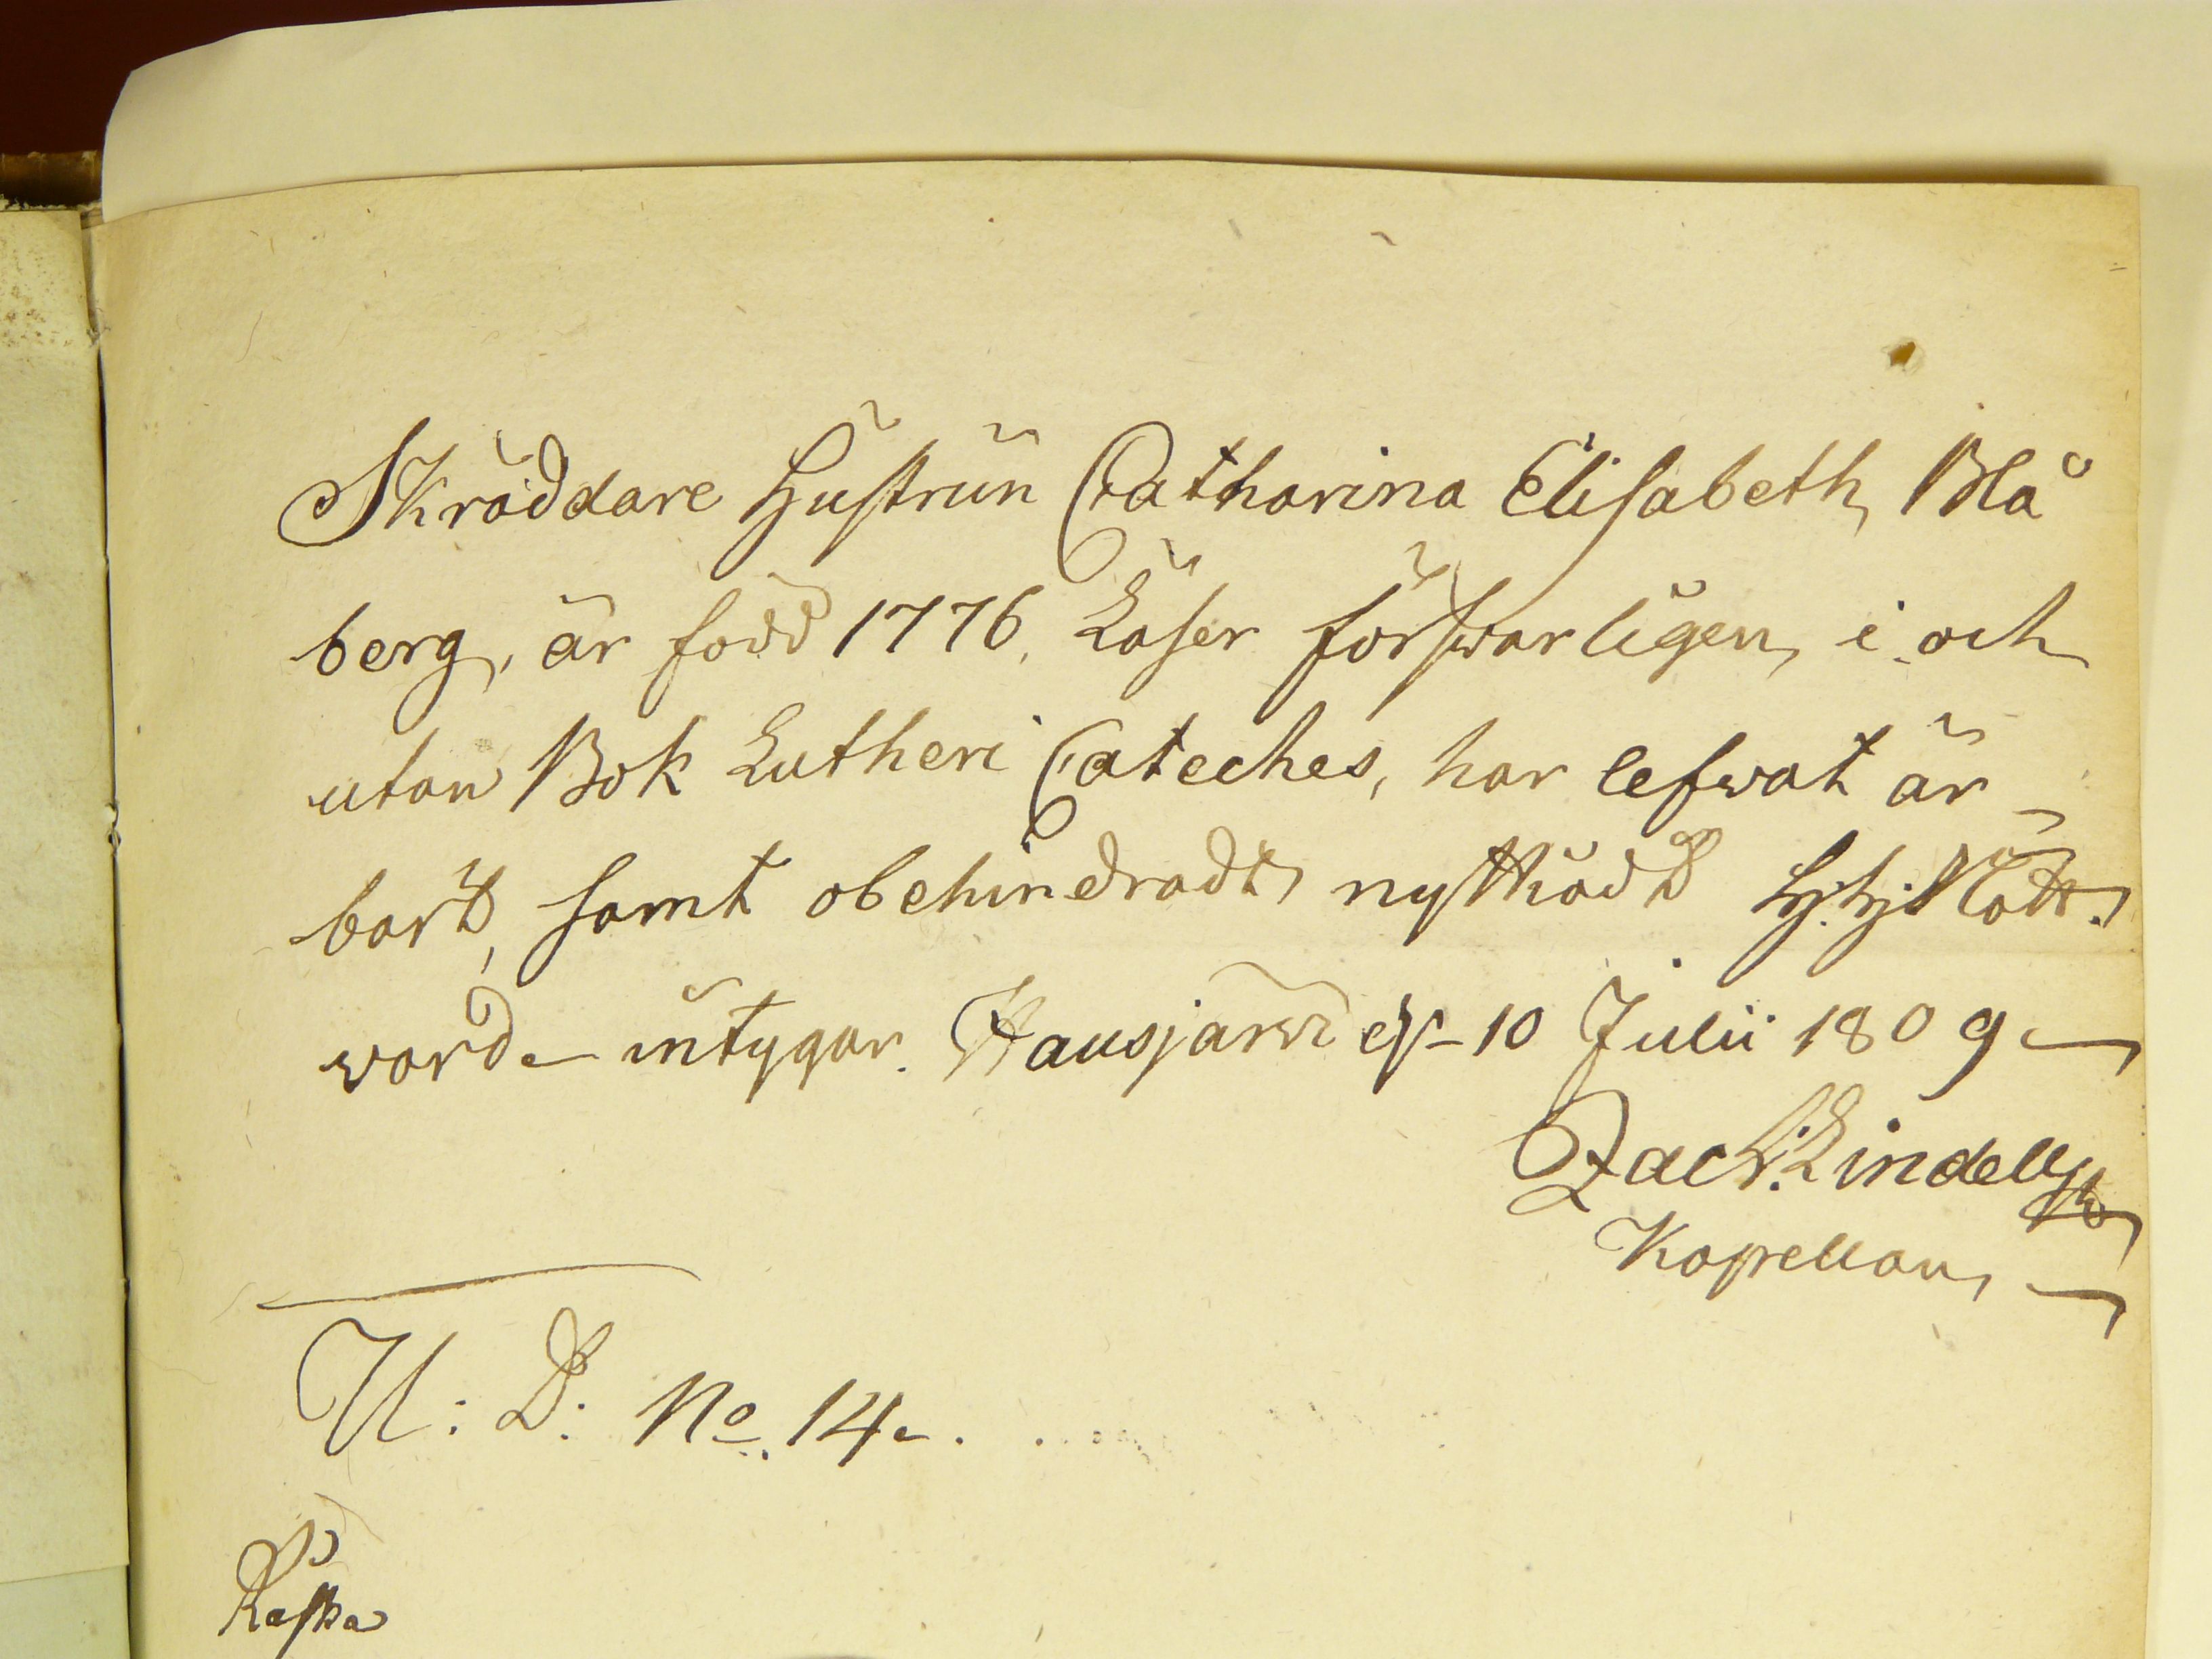 Skräddare Hustrun Catharina Elisabeth Blå
berg, är född 1776, Läser försvarligen i och
utan Bok Lutheri Cateches, har lefvat är
bart, samt obehindradt nyttiadt H. H. Nattv
vard intygar. Hausjärvi 10 Julii 1809
Zach: Lindell
Kapellan
U: D: No. 14.